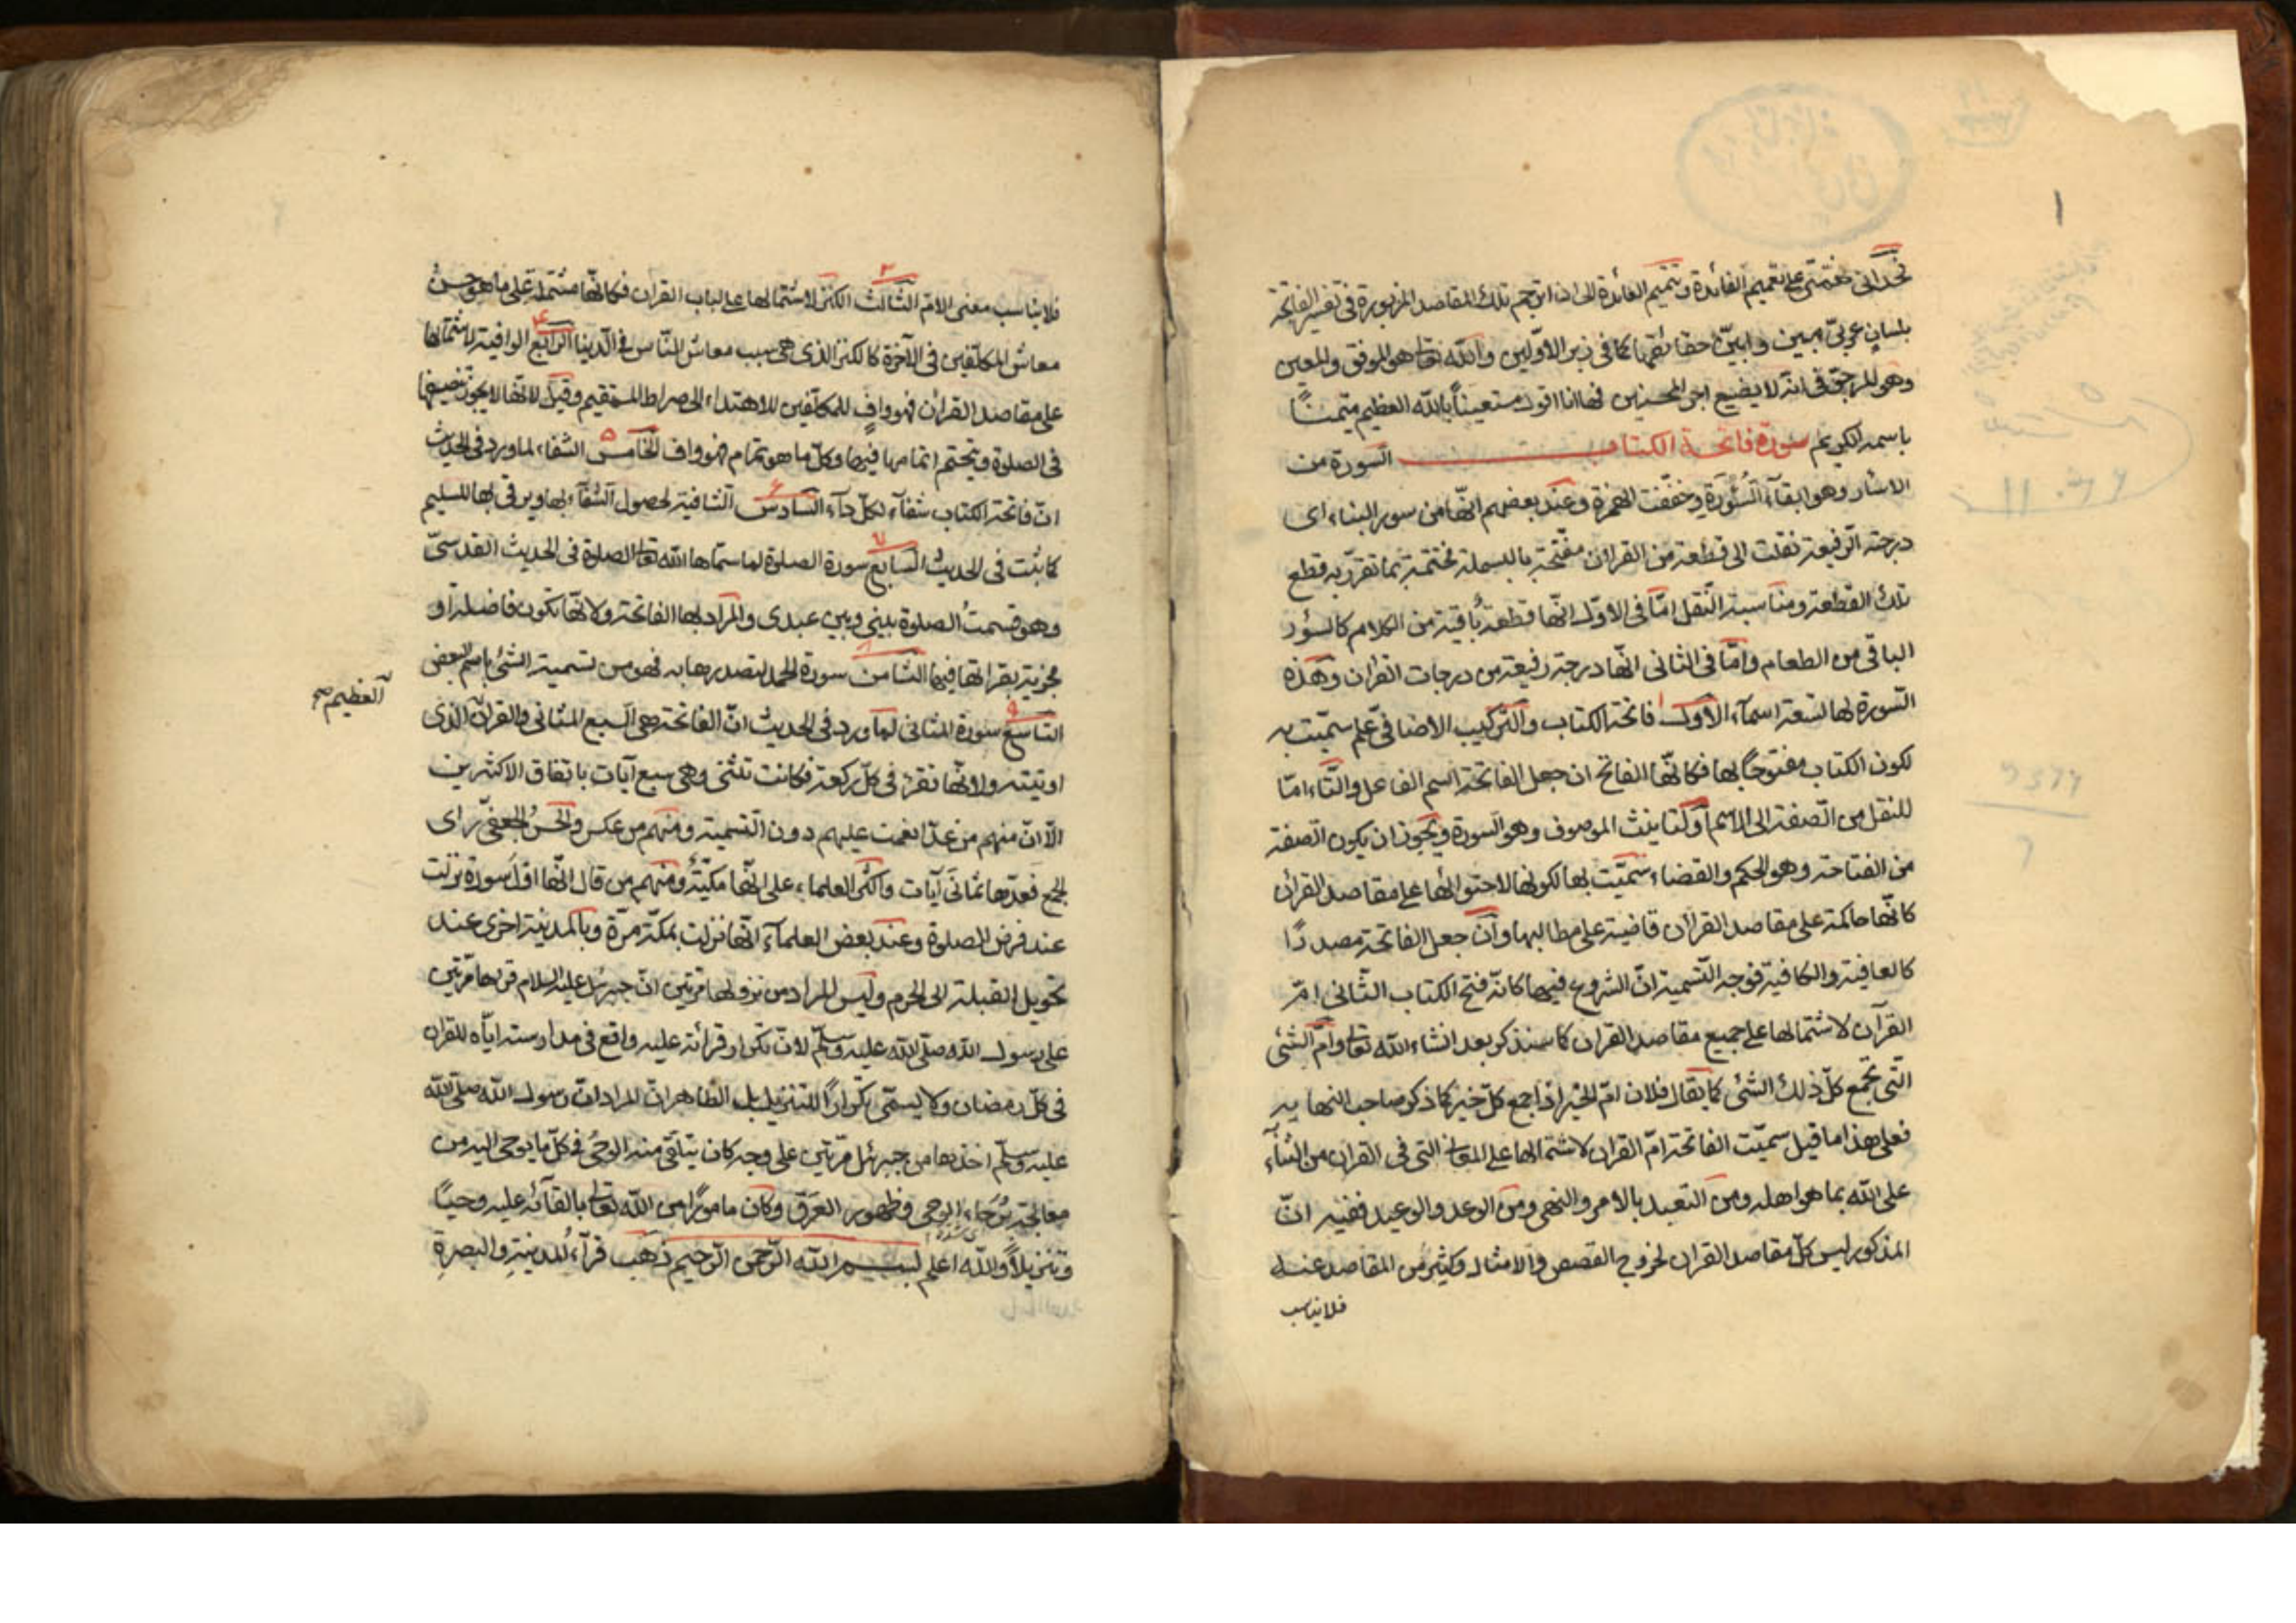 تحدانى همتى على تعميم الفائدة وتتميم العائدة الى ان اترجم تلك المقاصد المزبورة فى تفسير الفاتحة
بلسان عربىّ مبين وابيّن حقائقها كما فى زبر الاوّلين والله تعالى هو الموفق والمعين
وهو المرجوّ فى انه لا يضيع اجر المحسنين فها انا اقول مستعيناً بالله العظيم متيمناً
باسمه الكريم سورة فاتحة الكتاب السورة من
الاسئار وهو ابقاء السُّؤرة وخففت الهمزة وعند بعضهم انّها من سور البناء اى
درجته الرفيعة نقلت الى قطعة من القرآن مفتتحة بالبسملة مختتمة بما تقرّر به قطع
تلك القطعة ومناسبة النقل امّا فى الاوّل انّها قطعة باقية من الكلام كالسؤر
الباقى من الطعام وامّا فى الثانى انّها درجة رفيعة من درجات القران وهذه
السّورة لها تسعة اسماء الاوّل ١ فاتحة الكتاب والتركيب الاضافىّ علم سمّيت به
لكون الكتاب مفتوحاً بها فكانّها الفاتح ان جعل الفاتحة اسم الفاعل والتّاء امّا
للنقل من الصّفة الى الاسم او لتأنيث الموصوف وهو السورة ويجوز ان يكون الصفة
من الفتاحة وهو الحكم والقضاء سمّيت بها لكونها لاحتوائها على مقاصد القرأن
كانّها حاكمة على مقاصد القرأن قاضية على مطالبها وان جعل الفاتحة مصدرًا
كالعافية والكافية فوجه التّسمية انّ الشروع فيها كانّه فتح الكتاب الثّانى امّ
القرآن لاشتمالها على جميع مقاصد القران كما سنذكر بعد انشاء الله تعالى وامّ الشّئ
الّتى تجمع كلّ ذلك الشئ كما يقال فلان امّ الخير اذا جمع كلّ خير كما ذكر صاحب النهاية
فعلى هذا ما قيل سمّيت الفاتحة امّ القران لاشتمالها على المعانى التى فى القران من الثناء
على الله بما هو اهله ومن التعبد بالامر والنهى ومن الوعد والوعيد ففيه انّ
المذكور ليس كلّ مقاصد القران لخروج القصص والامثال وكثير من المقاصد عنه
فلا يناسب
فلا يناسب معنى الامّ الثّالث ٣ الكنز لاشتمالها على لباب القران فكانّها مشتملة على ما هو حسن
معاش المكلّفين فى الآخرة كالكنز الذى هى سبب معاش النّاس فى الدّينا الرّابع ٤ الوافية لاشتمالها
على مقاصد القرأن فهو وافٍ للمكلّفين للاهتداء الى صراط المستقيم وقيل لانّها لا يجوز تنصيفها
فى الصلوة ويتحتم اتمامها فيها وكلّ ما هو تمام فهو واف الخامس ٥ الشفاء لما ورد فى الحديث
انّ فاتحة الكتاب شفاء لكلّ داء السّادس ٦ الشافية لحصول الشّفاء بها ويرقى بها للسليم
كما ثبت فى الحديث السّابع ٧ سورة الصلوة لما سمّاها الله تعالى الصلوة فى الحديث القدسىّ
وهو قسمتُ الصلوة بينى وبين عبدى والمراد بها الفاتحة ولانّها تكون فاضلة او
مجزية بقرائتها فيها الثّامن ٨ سورة الحمد لتصدرها به فهو من تسمية الشئ باسم البعض
التّاسع ٩ سورة المثانى لما ورد فى الحديث انّ الفاتحة هى السبع المثانى والقرآن الّذى
العظيم صح
اوتيته ولانّها تقرء فى كلّ ركعة فكانت تثنى وهى سبع آيات باتفاق الاكثرين
الّا انّ منهم من عدّ انعمت عليهم دون التّسمية ومنهم من عكس والحسن الجعفىّ رأى
الجمع فعدّها ثمانى آيات واكثر العلماء على انّها مكيّة ومنهم من قال انّها اوّل سورة نزلت
عند فرض الصلوة وعند بعض العلماء انّها نزلت بمكّة مرّة وبالمدينة اخرى عند
تحويل القبلة الى الحرم وليس المراد من نزولها مرّتين انّ جبرئل عليه السلام قرءها مرّتين
على رسول الله صلى الله عليه وسلّم لانّ تكرار قرائته عليه واقع فى مدارسته ايّاه للقران
فى كلّ رمضان ولا يسمّى تكرارًا للتنزيل بل الظّاهر انّ المراد انّ رسول الله صلى الله
عليه وسلّم اخذها من جبرئل مرّتين على وجه كان يتلقّى منه الوحىُ فى كلّ ما يوحى اليه من
معالجة بُرَحاءِ الوحى وظهور العَرَق وكان مامورًا من الله تعالى بالقائه عليه وحيًا
وتنزيلًا والله اعلم بسم الله الرّحمن الرّحيم ذهب قرّاء المدينة والبصرة